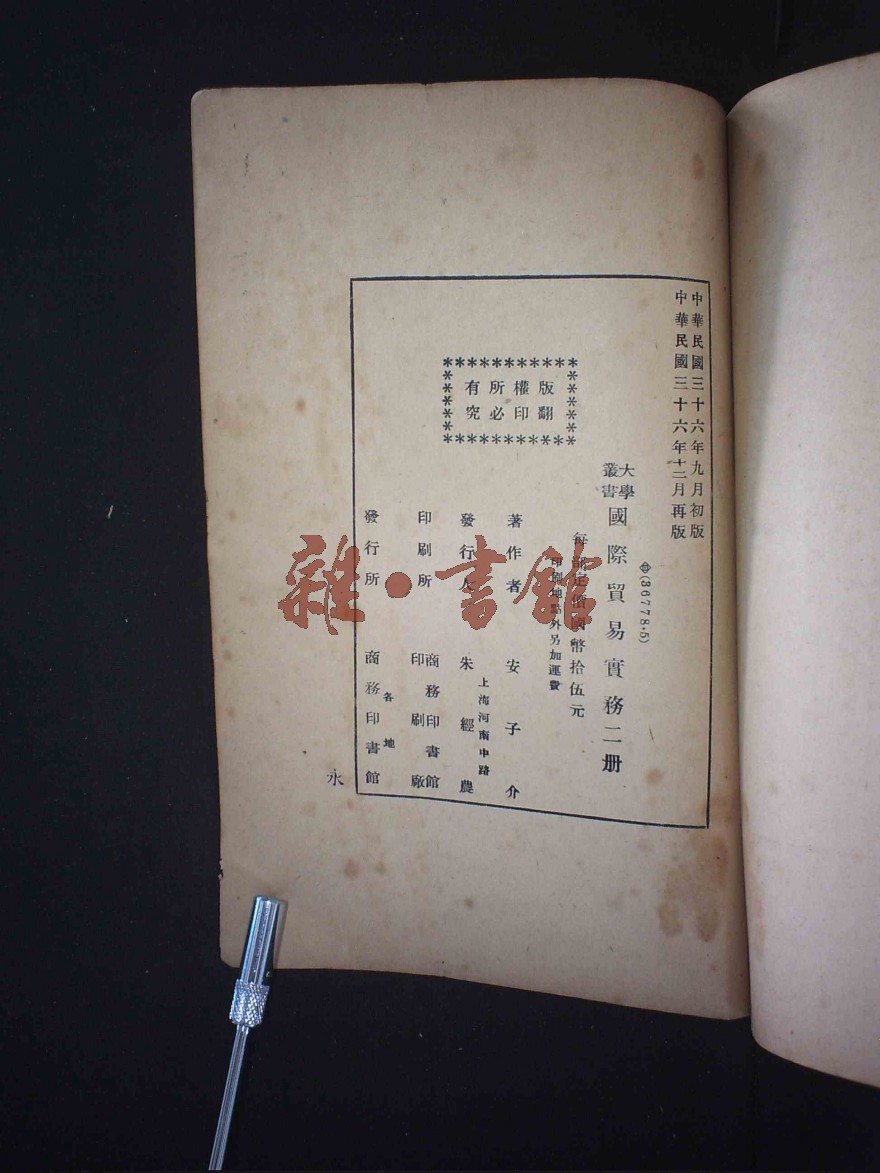 中華民國三十六年九月初版
中華民國三十六年十二月再版
中(36778·5)
大學叢書 國際貿易實務二册
每部定價國幣拾伍元
印刷地點外另加運費
版權所有
翻印必究
著作者 安子介
上海河南中路
發行人 朱經農
印刷所 商務印書館印刷廠
發行所 各地 商務印書館
永
雜·書館